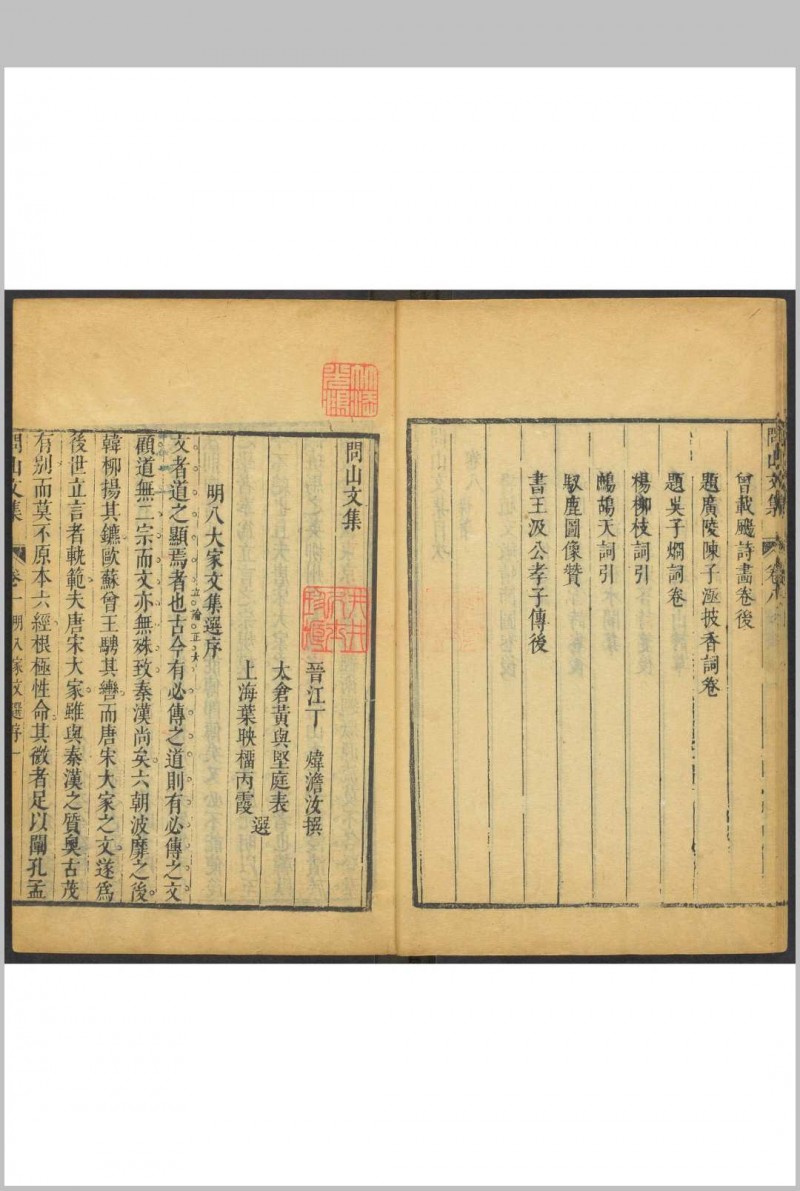 問山文集 卷八
曾載颺詩畵卷後
題廣陵陳子𣸣披香詞卷
題吳子燗詞卷
楊柳枝詞引
鷓鴣天詞引
馭鹿圖像贊
書王汲公孝子傳後
問山文集
晉江丁 煒澹汝撰
太倉黃與堅庭表
上海葉映榴丙霞 選
明八大家文集選序
文者道之顯焉者也古今有必傳之道則有必傳之文
立論正大
顧道無二宗而文亦無殊致秦漢尚矣六朝波靡之後
韓柳揚其鑣歐蘇曾王騁其轡而唐宋大家之文遂為
後世立言者軌範夫唐宋大家雖與秦漢之質奥古茂
有别而莫不原本六經根極性命其微者足以闡孔孟
問山文集 卷一 明八家文選序 一